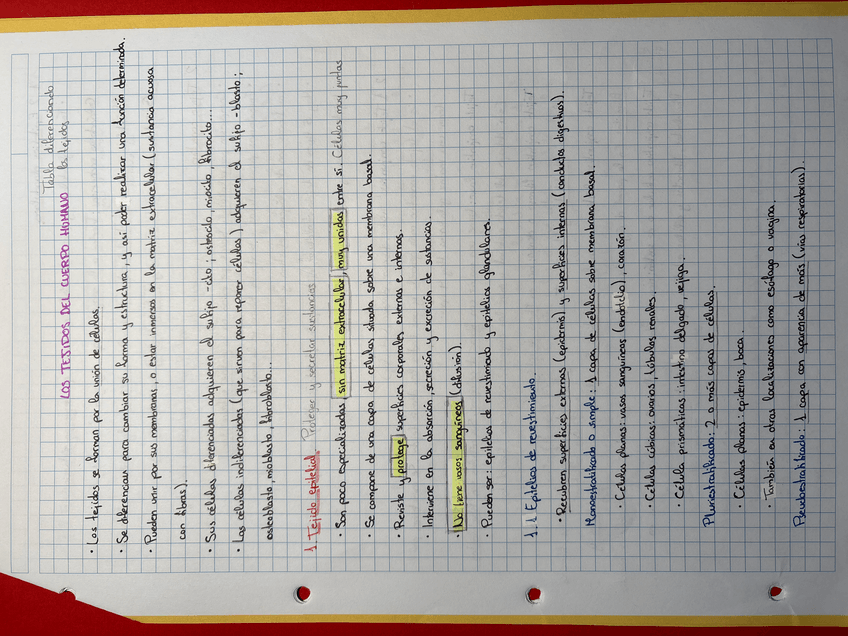 Tabla diferenciando
los tejidos
LOS TEJIDOS DEL CUERPO HUMANO
· Los tejidos se forman por la unión de células.
· Se diferencian para cambiar su forma y estructura, y así poder realizar una función determinada.
· Pueden unir por sus membranas, o estar inmersos en la matriz extracelular (sustancia acuosa
con fibras).
· Sus células diferenciadas adquieren el sufijo -cito; osteocito, miocito, fibrocito...
· Las células indiferenciadas (que sirven para reponer células) adquieren el sufijo -blasto;
osteoblasto, mioblasto, fibroblasto...
1. Tejido epitelial Proteger y secretar sustancias
· Son poco especializadas, sin matriz extracelular, muy unidas entre sí. Células muy juntas
· Se compone de una capa de células situada sobre una membrana basal.
· Reviste y protege superficies corporales externas e internas.
· Interviene en la absorción, secreción y excreción de sustancias.
· No tiene vasos sanguíneos (difusión).
· Pueden ser: epitelios de revestimiento y epitelios glandulares.
1.1 Epitelios de revestimiento.
· Recubren superficies externas (epidermis) y superficies internas (conductos digestivos).
Monoestratificado o simple: 1 capa de células sobre membrana basal.
· Células planas: vasos sanguíneos (endotelio), corazón.
· Células cúbicas: ovarios, túbulos renales.
· Célula prismáticas: intestino delgado, vejiga.
Pluriestratificado: 2 o más capas de células.
· Células planas: epidermis, boca.
· También en otras localizaciones como esófago o vagina.
Pseudoestratificado: 1 capa con apariencia de más (vías respiratorias).